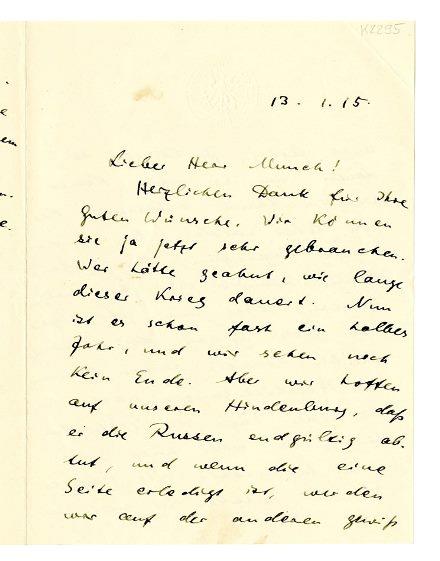 K2295
em
e.
13. 1. 15.
Lieber Herr Munch!
Herzlichen Dank für Ihre
guten Wünsche. Wir können
sie ja jetzt sehr gebrauchen.
Wer hätte geahnt, wie lange
dieser Krieg dauert. Nun
ist es schon fast ein halbes
Jahr, und wir sehen noch
kein Ende. Aber wir hoffen
auf unseren Hindenburg, daß
er die Russen endgültig ab-
tut, und wenn die eine
Seite erledigt ist, werden
wir auf der anderen gewiß